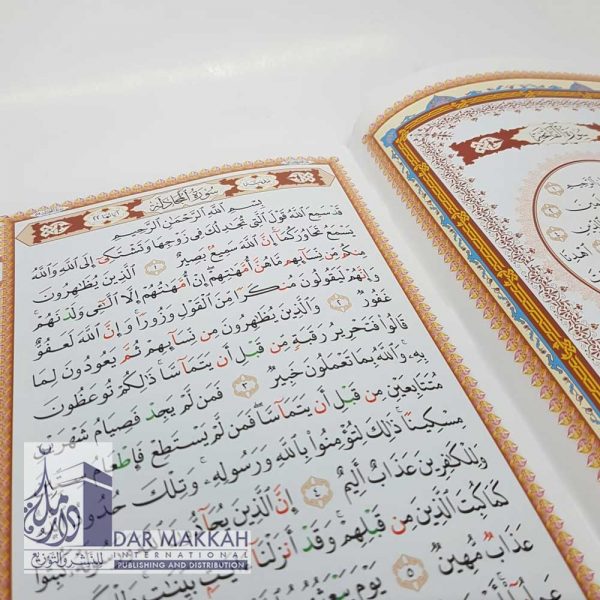 سُورَةُ المُجَادلَة
بِسْمِ اللَّهِ الرَّحْمَٰنِ الرَّحِيمِ
قَدْ سَمِعَ اللَّهُ قَوْلَ الَّتِي تُجَادِلُكَ فِي زَوْجِهَا وَتَشْتَكِي إِلَى اللَّهِ وَاللَّهُ
يَسْمَعُ تَحَاوُرَكُمَا إِنَّ اللَّهَ سَمِيعٌ بَصِيرٌ ١ الَّذِينَ يُظَاهِرُونَ
مِنكُم مِّن نِّسَائِهِم مَّا هُنَّ أُمَّهَاتِهِمْ إِنْ أُمَّهَاتُهُمْ إِلَّا اللَّائِي وَلَدْنَهُمْ
وَإِنَّهُمْ لَيَقُولُونَ مُنكَرًا مِّنَ الْقَوْلِ وَزُورًا وَإِنَّ اللَّهَ لَعَفُوٌّ
غَفُورٌ ٢ وَالَّذِينَ يُظَاهِرُونَ مِن نِّسَائِهِمْ ثُمَّ يَعُودُونَ لِمَا
قَالُوا فَتَحْرِيرُ رَقَبَةٍ مِّن قَبْلِ أَن يَتَمَاسَّا ذَٰلِكُمْ تُوعَظُونَ
بِهِ وَاللَّهُ بِمَا تَعْمَلُونَ خَبِيرٌ ٣ فَمَن لَّمْ يَجِدْ فَصِيَامُ شَهْرَيْنِ
مُتَتَابِعَيْنِ مِن قَبْلِ أَن يَتَمَاسَّا فَمَن لَّمْ يَسْتَطِعْ فَإِطْعَامُ
مِسْكِينًا ذَٰلِكَ لِتُؤْمِنُوا بِاللَّهِ وَرَسُولِهِ وَتِلْكَ حُدُودُ
وَلِلْكَافِرِينَ عَذَابٌ أَلِيمٌ ٤ إِنَّ الَّذِينَ يُحَادُّونَ
كَمَا كُبِتَ الَّذِينَ مِن قَبْلِهِمْ وَقَدْ أَنزَلْنَا آيَاتٍ بَيِّنَاتٍ
عَذَابٌ مُّهِينٌ ٥ يَوْمَ يَبْعَثُهُمُ
دار مكة
للنشر والتوزيع
DAR MAKKAH
INTERNATIONAL
PUBLISHING AND DISTRIBUTION